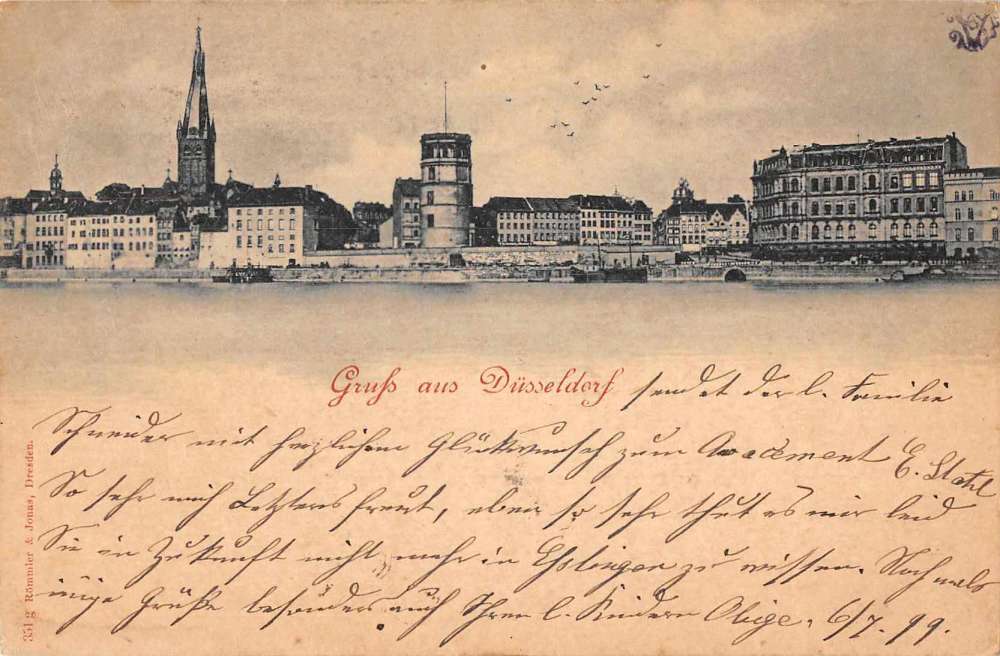 Gruß aus Düsseldorf sendet der l. Familie
Schneider mit herzlichem Glückwunsch zum Avacement E. Stahl
So sehr mich Letzteres freut, eben so sehr thut es mir leid
Sie in Zukunft nicht mehr in Esslingen zu wissen. Nochmals
Grüße besonders auch Ihren l. Kindern Obige. 6/7. 99.
351 g Römmler & Jonas, Dresden.